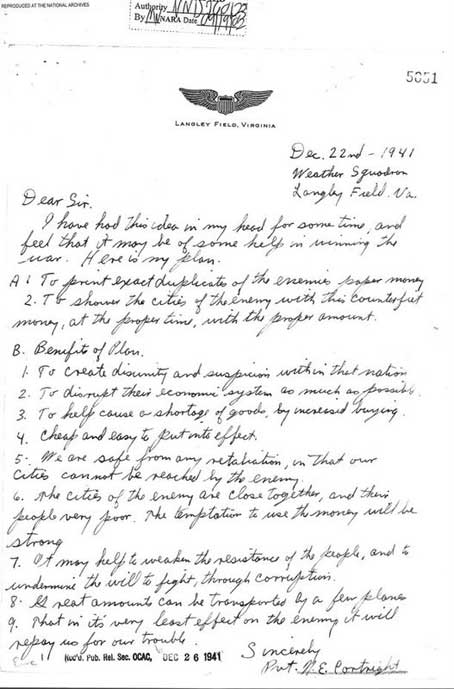 REPRODUCED AT THE NATIONAL ARCHIVES
Authority
By NARA Date
5051
LANGLEY FIELD, VIRGINIA
Dec. 22nd - 1941
Weather Squadron
Langley Field, Va.
Dear Sir.
I have had this idea in my head for some time, and
feel that it may be of some help in winning the
war. Here is my plan.
A 1. To print exact duplicates of the enemies paper money
2. To shower the cities of the enemy with this counterfeit
money, at the proper time, with the proper amount.
B. Benefits of Plan.
1. To create disunity and suspicion within that nation
2. To disrupt their economic system as much as possible.
3. To help cause a shortage of goods, by increased buying.
4. Cheap and easy to put into effect.
5. We are safe from any retaliation, in that our
cities cannot be reached by the enemy.
6. The cities of the enemy are close together, and their
people very poor. The temptation to use the money will be
strong
7. It may help to weaken the resistance of the people, and to
undermine the will to fight, through corruption.
8. Great amounts can be transported by a few planes
9. That in it's very least effect on the enemy it will
repay us for our trouble.
Rec'd. Pub. Rel. Sec. OCAC, DEC 26 1941
Sincerely
Pvt. N.E. Cortright